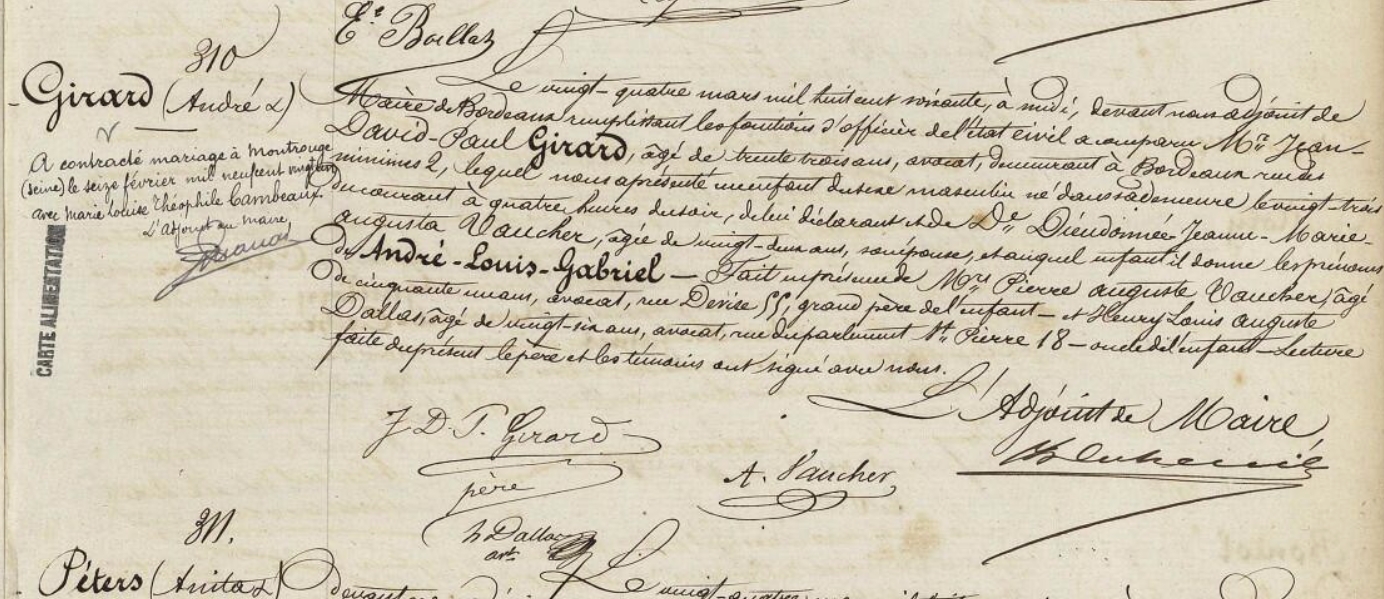 Ee Boellaz
310
Girard (André L)
A contracté mariage à Montrouge
(Seine) le seize février mil neuf cent vingt
avec Marie Louise Théophile Cambeaux.
L'Adjoint au Maire,
CARTE ALIMENTATION
Le vingt-quatre mars mil huit cent soixante, à midi, devant nous adjoint de
Maire de Bordeaux remplissant les fonctions d'officier de l'état civil a comparu Mr. Jean-
David-Paul Girard, âgé de trente trois ans, avocat, demeurant à Bordeaux rue des
minimes 2, lequel nous a présenté un enfant du sexe masculin né dans sa demeure le vingt-trois
du courant à quatre heures du soir, de lui déclarant et de De Dieudonnée Jeanne-Marie-
augusta Vaucher, âgée de vingt-deux ans, son épouse, et auquel enfant il donne les prénoms
de André-Louis-Gabriel — Fait en présence de Mrs Pierre auguste Vaucher, âgé
de cinquante un ans, avocat, rue Devise 55, grand père de l'enfant — et Henry Louis auguste
Dallas, âgé de vingt-six ans, avocat, rue du parlement St Pierre 18 — oncle de l'enfant — Lecture
faite du présent le père et les témoins ont signé avec nous.
L'Adjoint de Maire
J. D. P. Girard
père
A. Vaucher
h Dallas
avt
311.
Péters (Anita L)
Le vingt-quatre
devant